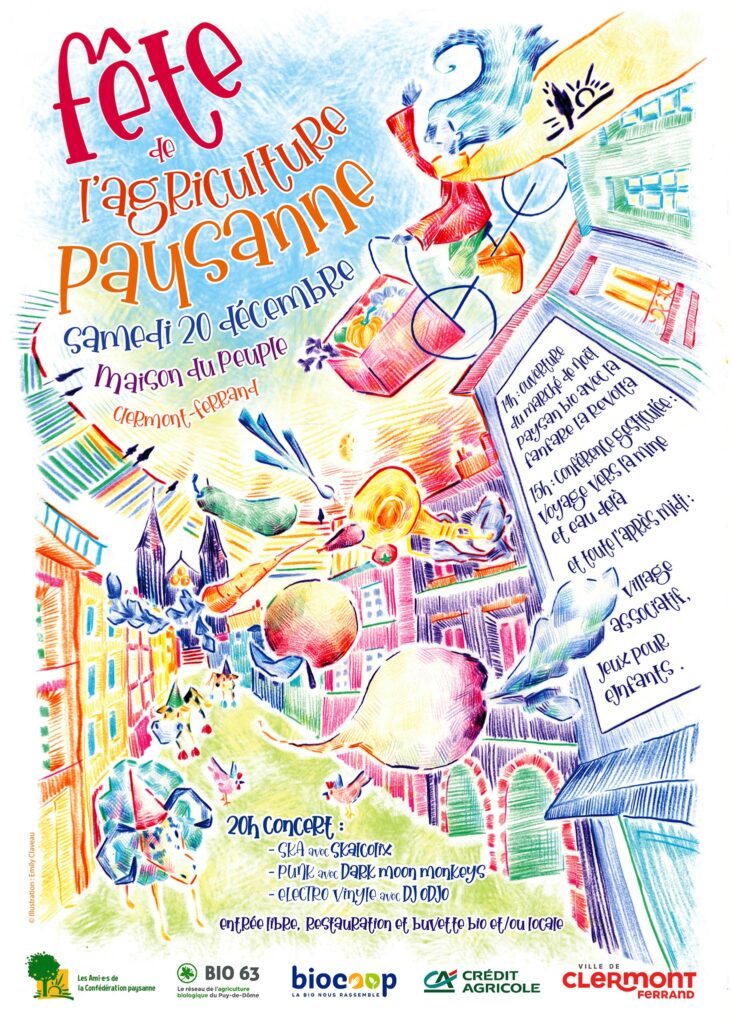 fête
de
l'agriculture
paysanne
samedi 20 décembre
Maison du Peuple
Clermont-Ferrand
14h : ouverture
du marché de noël
paysan bio avec la
fanfare la Revolta
15h : Conférence gesticulée :
Voyage vers la mine
et eau delà
et toute l'après midi :
Village
associatif,
Jeux pour
enfants .
20h Concert :
- SKA avec Skalcolix
- Punk avec Dark Moon Monkeys
- electro vinyle avec DJ ODJO
entrée libre, Restauration et buvette bio et/ou locale
© Illustration : Emily Claveau
Les Ami·e·s de
la Confédération paysanne
BIO 63
Le réseau de l'agriculture
biologique du Puy-de-Dôme
biocoop
LA BIO NOUS RASSEMBLE
CA CRÉDIT
AGRICOLE
VILLE DE
CLERMONT
FERRAND